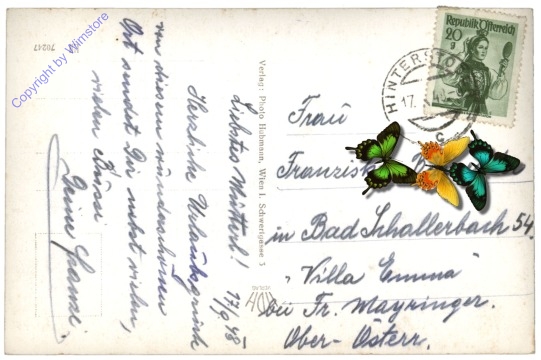 17/9 48
Liebstes Mutterl!
Herzliche Urlaubsgrüße
von diesem wunderschönen
Ort sendet Dir nebst vielen,
vielen Küssi
Deine
Frau
Franziska
in Bad Schallerbach 54.
"Villa Emma"
bei Fr. Mayringer.
Ober-Österr.
Republik Österreich
20
g
HINTERSTO
17.
Verlag: Photo Hubmann, Wien I. Schwertgasse 3
70247
Copyright by Wimstore